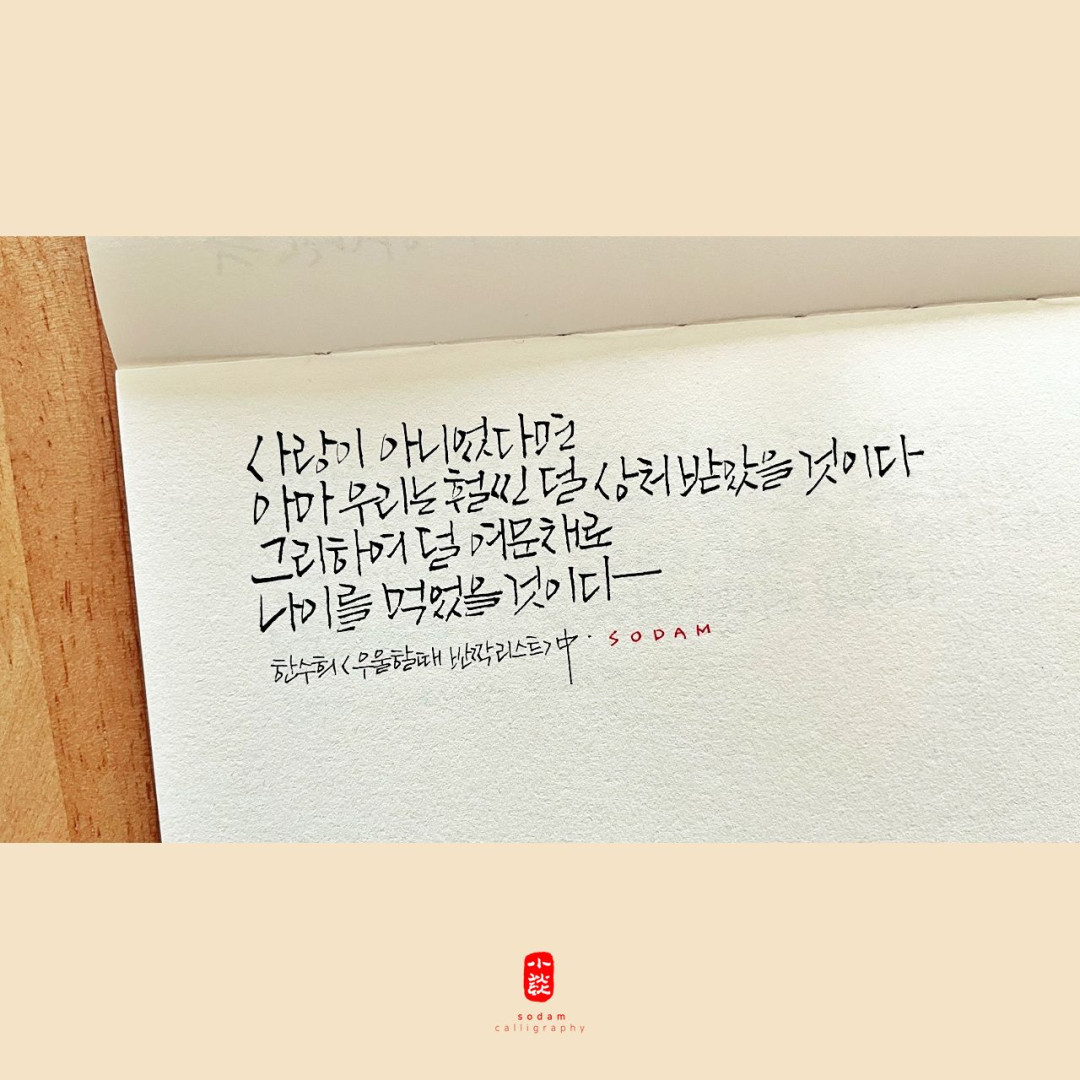 사랑이 아니었다면
아마 우리는 훨씬 덜 상처받았을 것이다
그리하여 덜 여문채로
나이를 먹었을 것이다
한수희 <우울할때 반짝리스트> 中. SODAM
小談
sodam
calligraphy